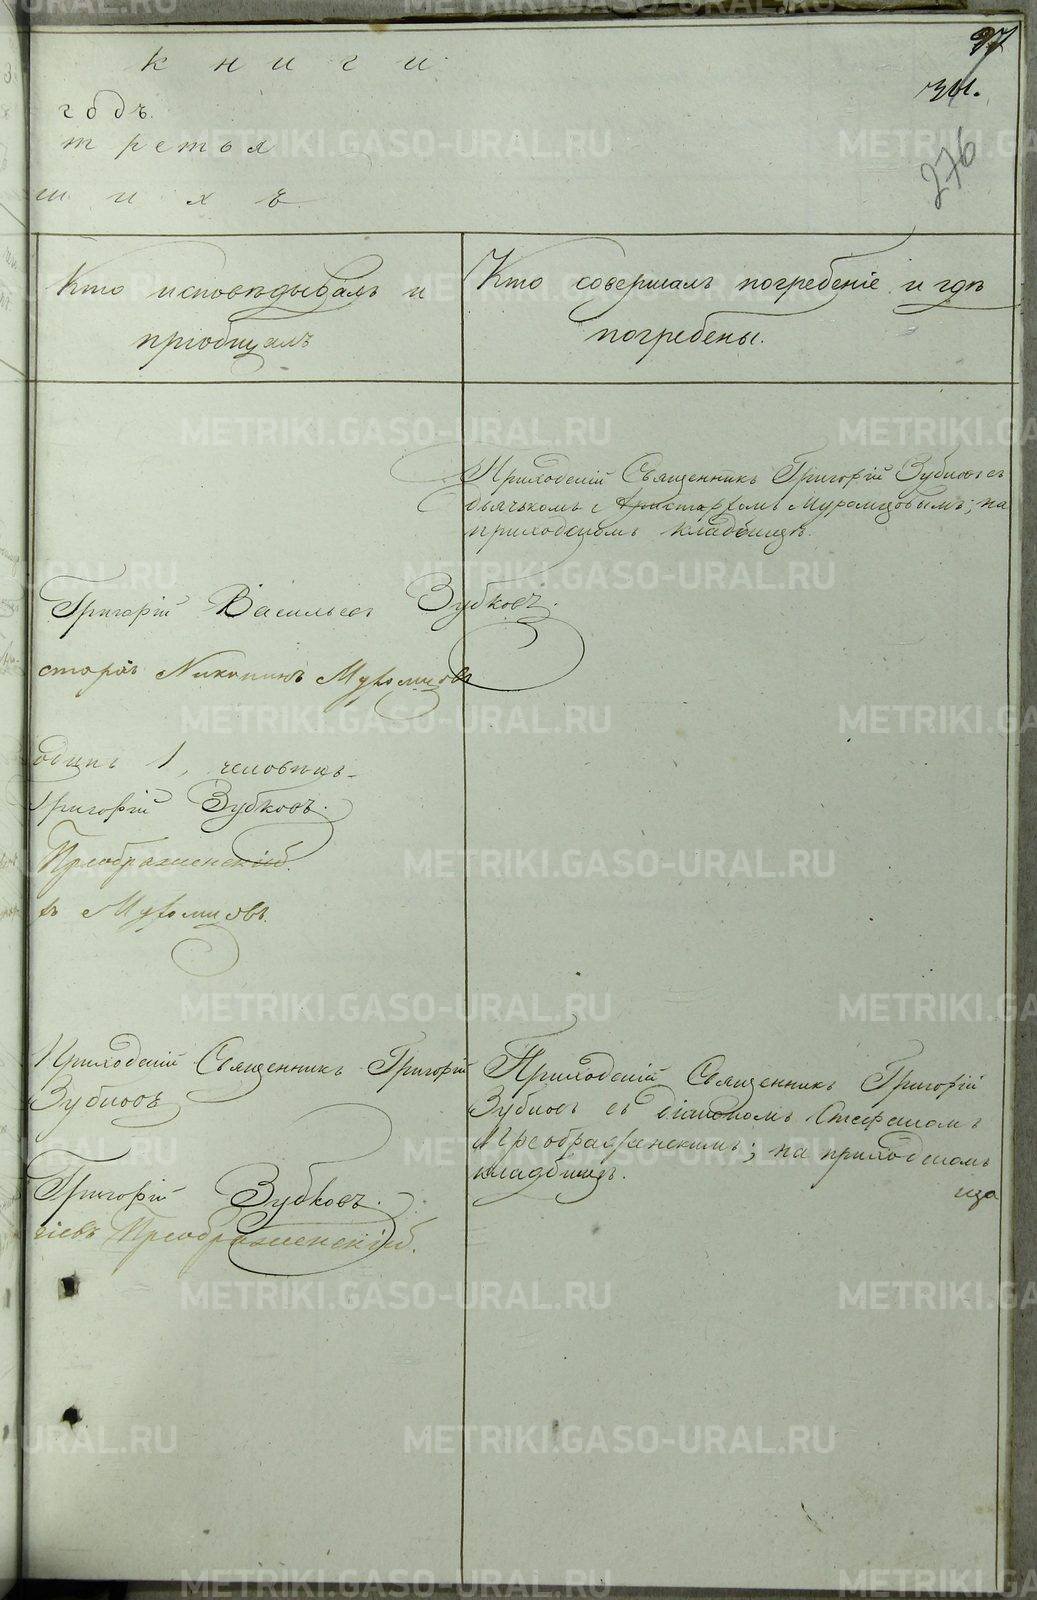 книги
97
годъ.
341.
третья
276
шихъ
Кто исповѣдывалъ и
пріобщалъ
Кто совершалъ погребеніе и гдѣ
погребены.
Приходскій Священникъ Григорій Зубковъ съ
дьячькомъ Аристархомъ Муромцовымъ; на
приходскомъ кладбищѣ.
Григорій Васильевъ Зубковъ.
стархъ Никонинъ Муромцовъ
одинъ 1, человѣкъ
Григорій Зубковъ.
Преображенскій.
хъ Муромцовъ.
Приходскій Священникъ Григорій
Зубковъ
Приходскій Священникъ Григорій
Зубковъ съ діакономъ Стефаномъ
Преображенскимъ; на приходскомъ
кладбищѣ.
Григорій Зубковъ.
Преображенскій.
METRIKI.GASO-URAL.RU